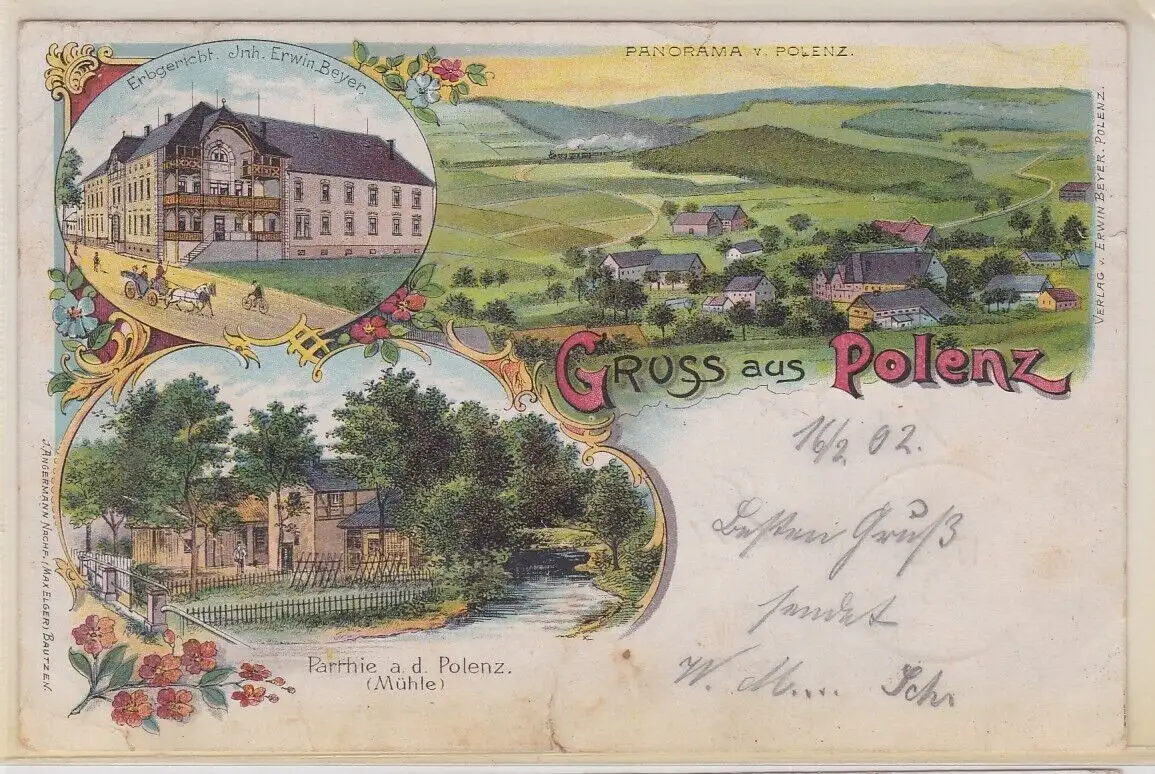 Erbgericht. Jnh. Erwin Beyer.
PANORAMA v. POLENZ.
VERLAG v. ERWIN BEYER. POLENZ.
GRUSS aus Polenz
16/2. 02.
Besten Gruß
sendet
W. M.... Sch.
Parthie a. d. Polenz.
(Mühle)
J. ANGERMANN NACHF. (MAX ELGER) BAUTZEN.